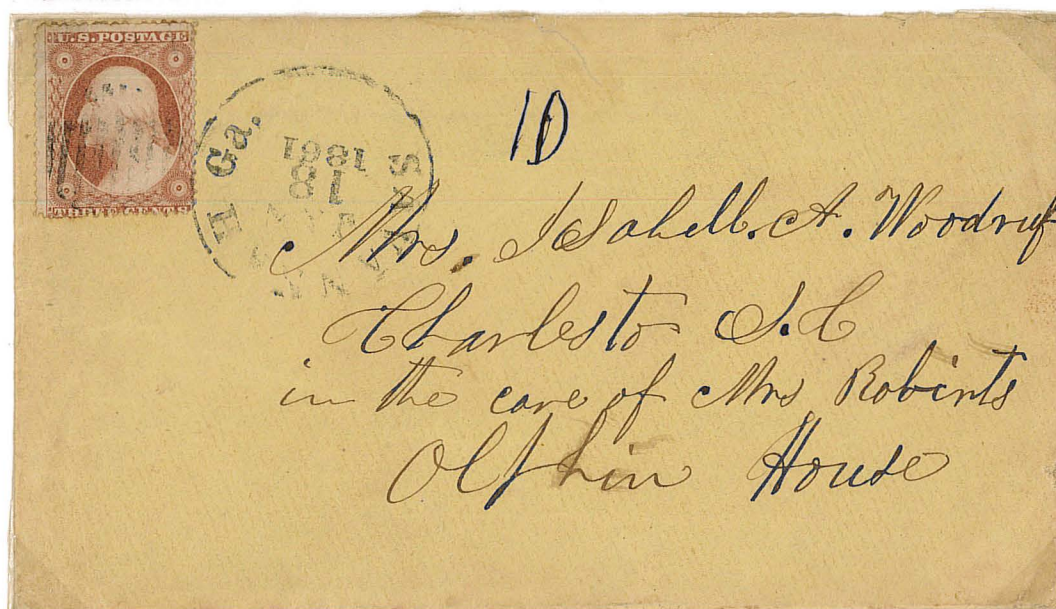 U.S. POSTAGE
THREE CENTS
SAVANNAH Ga.
18
1861
10
Mrs. Isabell. A. Woodruf
Charlesto S.C
in the care of Mrs Robints
House